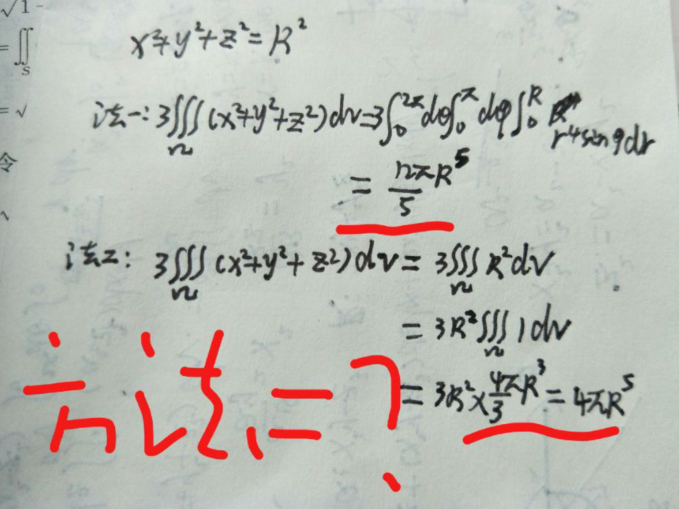 √1-
= ∬
S
x²+y²+z²=R²
= √
法一: 3∭(x²+y²+z²)dv=3∫₀^2π dθ∫₀^π dφ∫₀^R r⁴sinφdr
Ω
令
= 12π/5 R⁵
法2: 3∭(x²+y²+z²)dv = 3∭R²dv
Ω Ω
= 3R²∭1dv
Ω
= 3R²×4π/3 R³ = 4πR⁵
方法二?